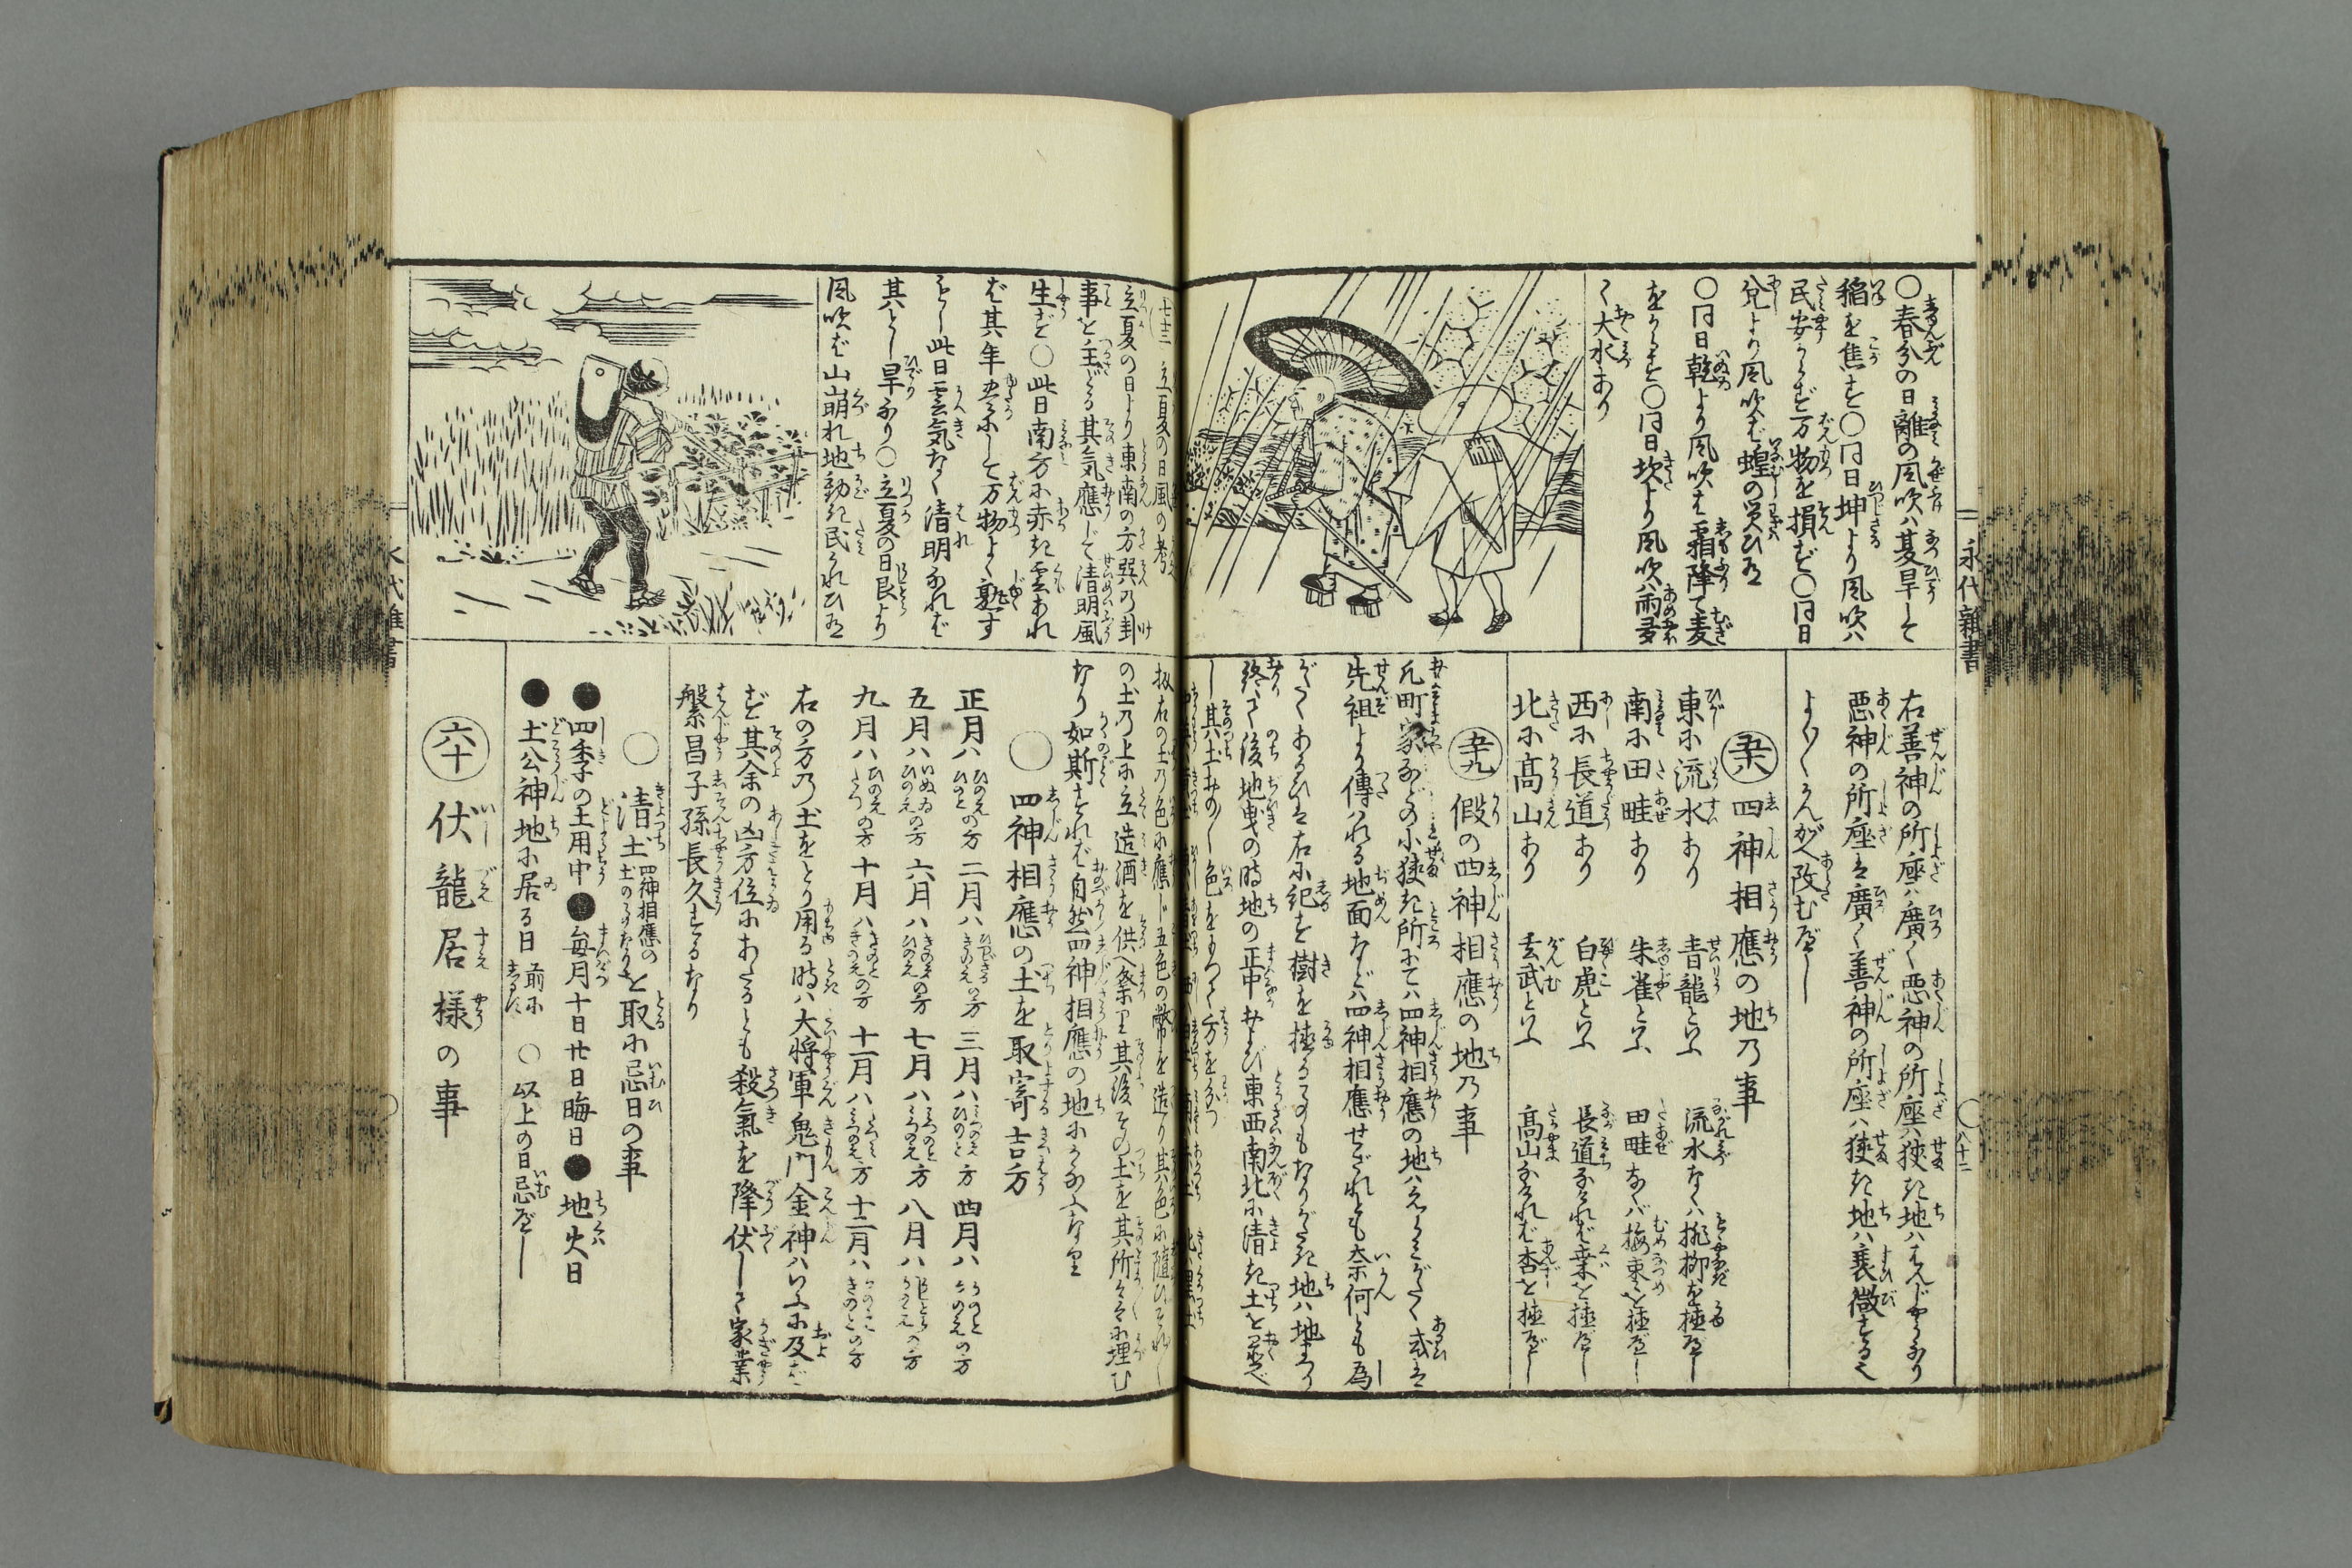 永代雜書
八十二
○春分の日離の風吹ハ夏旱して
稲を焦す○同日坤より風吹ハ
民安からず万物を損ず○同日
兌より風吹ば蝗の災ひあり
○同日乾より風吹ば霜降て麦
をからす○同日坎より風吹ハ雨多
く大水あり
右善神の所座ハ廣く悪神の所座ハ狹き地ハはんじやうなり
悪神の所座は廣く善神の所座ハ狹き地ハ衰微するなり
よく〳〵かんがへ改むべし
五十八 四神相應の地乃事
東に流水あり 青龍といふ 流水なくハ桃柳を植べし
南に田畦あり 朱雀といふ 田畦なくバ梅棗を植べし
西に長道あり 白虎といふ 長道なければ桑を植べし
北に高山あり 玄武といふ 高山なければ杏を植べし
五十九 假の四神相應の地乃事
凡町家などの小狹き所にてハ四神相應の地ハえらみがたく或は
先祖より傳ハれる地面などハ四神相應せざれとも奈何とも為
がたくあるひは右に紀す樹を植るものもなりがたき地ハ地まつり
終て後地曳の時地の正中および東西南北に清き土を置べ
し其土おの〳〵色をもつて方をわかつ
七十三 立夏の日風の考
立夏の日より東南の方巽の卦
事を主どる其気應じて清明風
生ず○此日南方に赤き雲あれ
ば其年豊にして万物よく熟す
べし此日雲気なく清明なれば
其とし旱あり○立夏の日艮より
風吹ば山崩れ地動き民うれひあり
扨右の土乃色に應じ五色の幣を造り其色に隨ひそれ〳〵
の土乃上に立造酒を供へ祭り其後その土を其所々に埋む
なり如斯すれば自然四神相應の地にかなふなり
○四神相應の土を取寄吉方
正月ハひのえひのとの方 二月ハひつじさるきのえの方 三月ハみづのえひのと方 四月ハかのとかのえの方
五月ハいぬゐひのえの方 六月ハきのえひのえの方 七月ハみづのとみづのえ方 八月ハうしとらかのえの方
九月ハひのえたつの方 十月ハきのときのえの方 十一月ハたつみみづのえ方 十二月ハかのえきのとの方
右の方乃土をとり用る時ハ大将軍鬼門金神ハいふに及ば
ず其余の凶方位にあたるとも殺氣を降伏して家業
繁昌子孫長久するなり
○清土 四神相應の土のことなり を取に忌日の事
●四季の土用中●毎月十日廿日晦日●地火日
●土公神地に居る日 前にしるす ○以上の日忌べし
六十 伏龍居様の事
永代雜書